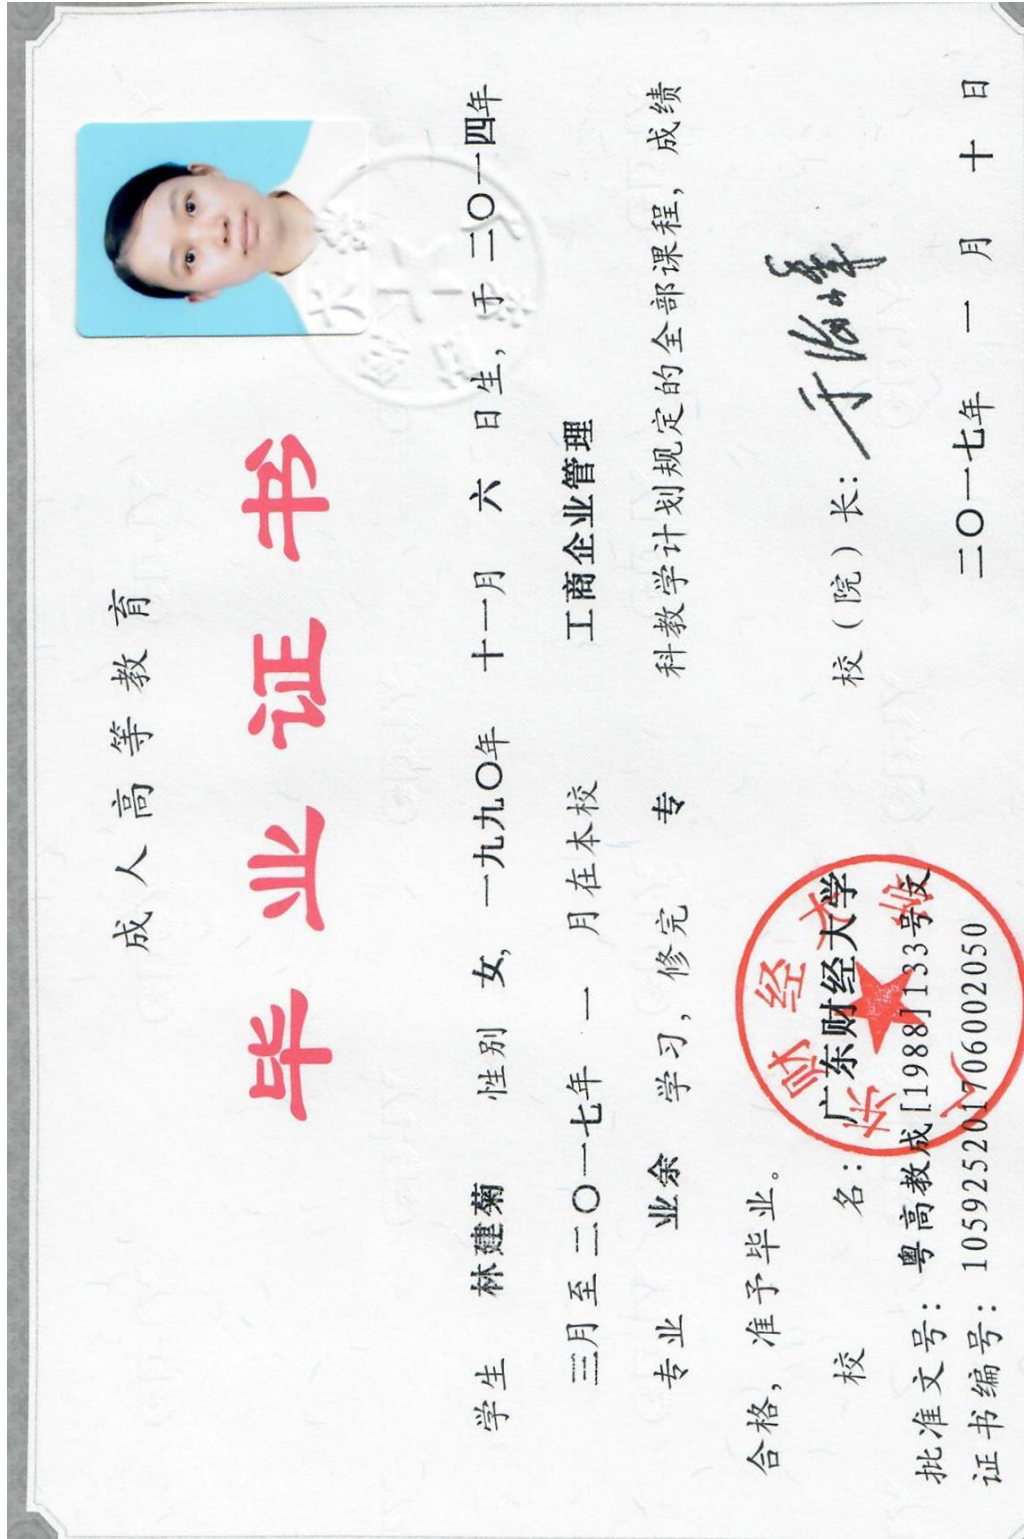 成人高等教育
毕业证书
学生 林建菊 性别 女, 一九九〇年 十一月 六 日生, 于 二〇一四年
三月至 二〇一七年 一 月在本校 工商企业管理
专业 业余 学习, 修完 专 科教学计划规定的全部课程, 成绩
合格, 准予毕业。
校 名: 广东财经大学 校(院)长:
批准文号: 粤高教成[1988]133号文
证书编号: 105925201706002050 二〇一七年 一 月 十 日